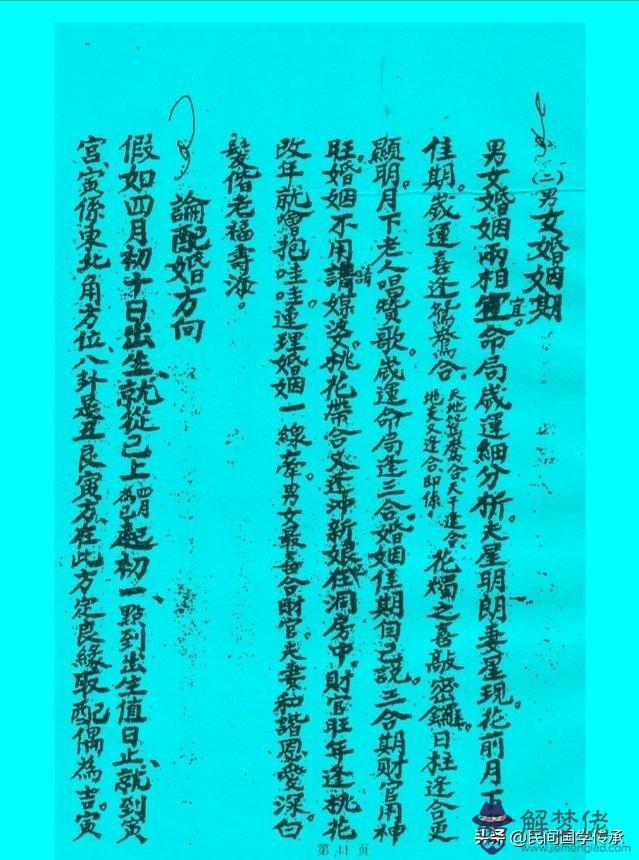 (二)男女婚姻期
男女婚姻兩相宜。命局歲運細分析。夫星明朗妻星現。花前月下
佳期。歲運喜逢鴛鴦合。天地鴛鴦合天干逢合、地支又逢合、即係。花燭之喜敲密鑼。日柱逢合更
顯明。月下老人唱贊歌。歲運命局逢三合。婚姻佳期自己說。三合期財官用神
旺。婚姻不用請媒婆。桃花帶合又逢沖。新娘在洞房中。財官旺年逢桃花
改年就噲抱哇哇。連理婚姻一線牽。男女最喜合財官。夫妻和諧恩愛深。白
髮偕老福壽添。
論配婚方向
假如四月初十日出生、就從已上四月為已起初一、點到出生值日止、就到寅
宮、寅係東北角方位、八卦是丑艮寅方、在此方定良緣取配偶為吉。寅
第11页
解梦佬
www.jiemenglao.com
头条@民间国学传承